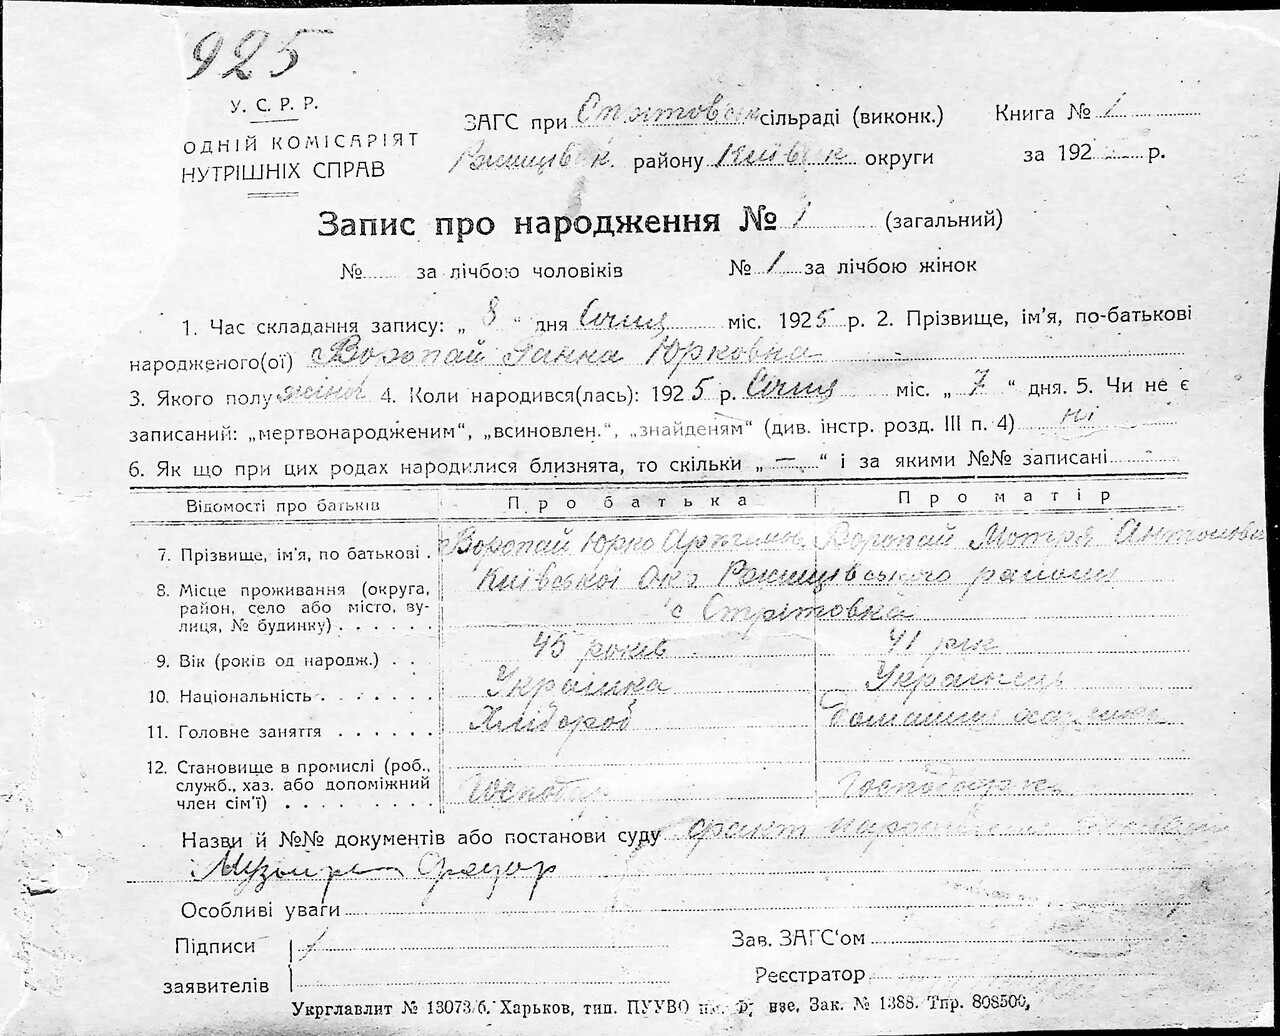 925
У. С. Р. Р.
ОДНІЙ КОМІСАРІЯТ
НУТРІШНІХ СПРАВ
ЗАГС при Стрітовськ сільраді (виконк.) Книга № 1
Ржищівськ. району Київськ округи за 192 р.
Запис про народження № 1 (загальний)
№ за лічбою чоловіків № 1 за лічбою жінок
1. Час складання запису: „ 8 “ дня Січня міс. 1925 р. 2. Прізвище, ім'я, по-батькові
народженого(ої) Воропай Ганна Юрковна
3. Якого полу жіноч 4. Коли народився(лась): 1925 р. Січня міс. „ 7 “ дня. 5. Чи не є
записаний: „мертвонародженим“, „всиновлен.“, „знайденям“ (див. інстр. розд. III п. 4) ні
6. Як що при цих родах народилися близнята, то скільки „ — “ і за якими №№ записані -
Відомості про батьків Про батька Про матір
7. Прізвище, ім'я, по батькові . Воропай Юрко Артемов. Воропай Мотря Антоновна
8. Місце проживання (округа, район, село або місто, вулиця, № будинку) . . . . . . Київської Окр Ржищівського району
с Стрітовка
9. Вік (років од народж.) . . 45 років 41 рік
10. Національність . . . . . . Українка Українець
11. Головне заняття . . . . . . Хлібороб Домашня
12. Становище в промислі (роб., служб., хаз. або допоміжний член сім'ї) . . . . . . . . . Господар Господарка
Назви й №№ документів або постанови суду факт народження
Федор
Особливі уваги
Підписи Зав. ЗАГС'ом
заявителів Реєстратор
Укрглавлит № 13073/б. Харьков, тип. ПУУВО Зак. № 1388. Тпр. 808500,